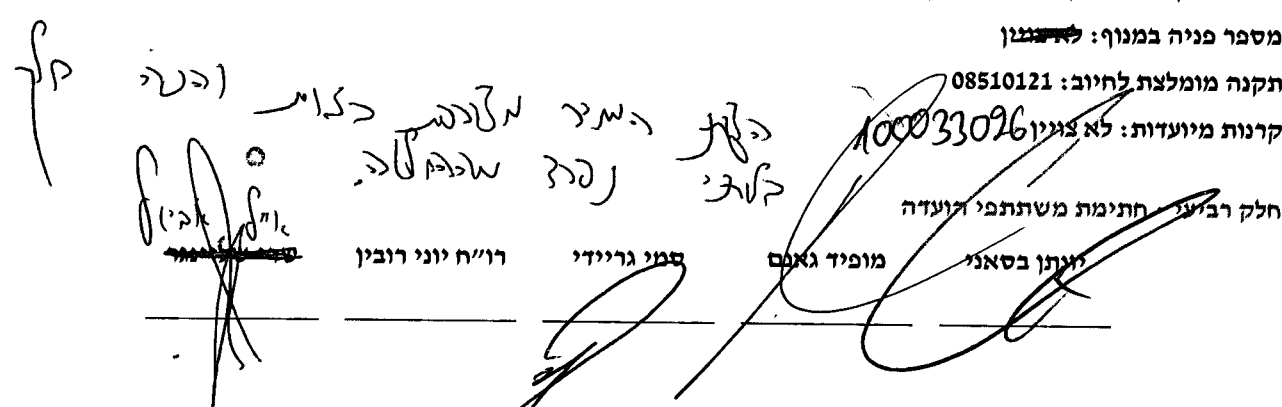 מספר פניה במנוף:
תקנה מומלצת לחיוב: 08510121
קרנות מיועדות: לא צויין 100033026
הצעת המחיר מצורפת כצות והינה חלק
בלתי נפרד מההחלטה.
חלק רביעי - חתימת משתתפי הועדה
אביאל
יונתן בסאני מופיד גאנם סמי גריידי רו״ח יוני רובין